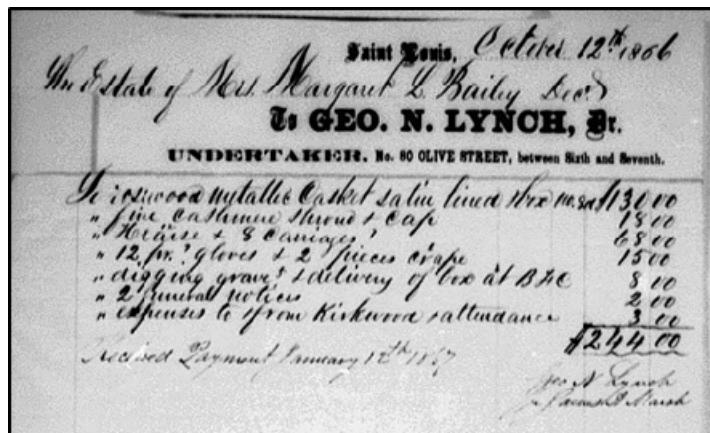 Saint Louis, October 12th 1866
The Estate of Mrs. Margaret L Bailey Decd
To GEO. N. LYNCH, Dr.
UNDERTAKER, No. 80 OLIVE STREET, between Sixth and Seventh.
To rosewood metallic Casket satin lined & box $130 00
" fine cashmere shroud & Cap 18 00
" Hearse & 8 Carriages 68 00
" 12 pr. gloves & 2 pieces crape 15 00
" digging grave & delivery of box at 8 00
" 2 funeral notices 2 00
" expenses to & from Kirkwood & attendance 3 00
$244 00
Received Payment January 12th 1867
Geo N Lynch